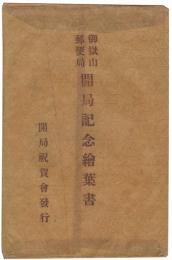 御嶽山
郵便局
開局記念繪葉書
開局祝賀會發行